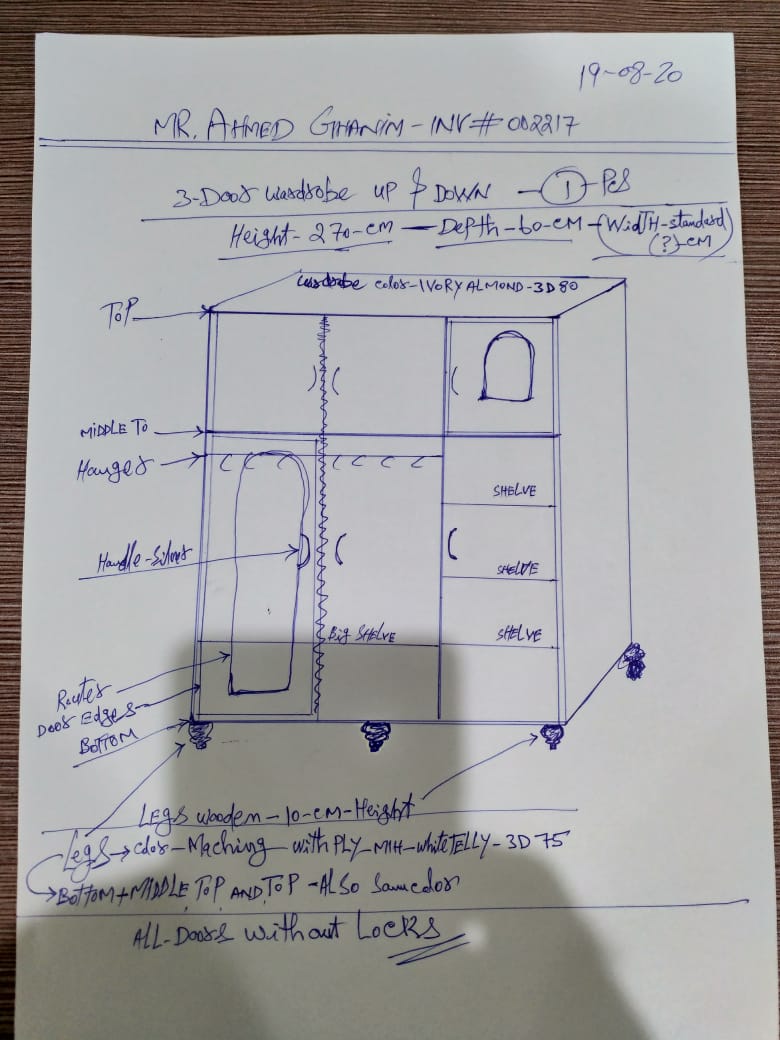 19-08-20
MR. AHMED GHANIM - INV# 002217
3-Door wardrobe UP & DOWN - 1 - Pcs
Height - 270-cm - Depth - 60-cm - (WidTH-standard
(?)-cm
wardrobe color-IVORY ALMOND-3D80
TOP
MIDDLE TO
Hanger
SHELVE
Handle-Silver
SHELVE
Big SHELVE
SHELVE
Router
Door Edges
BOTTOM
LEGS wooden - 10-cm-Height
Legs → color-Maching with PLY-MIH-whiteTELLY-3D75
BOTTOM+MIDDLE TOP AND TOP - ALSO Same color
ALL-Doors without Locks